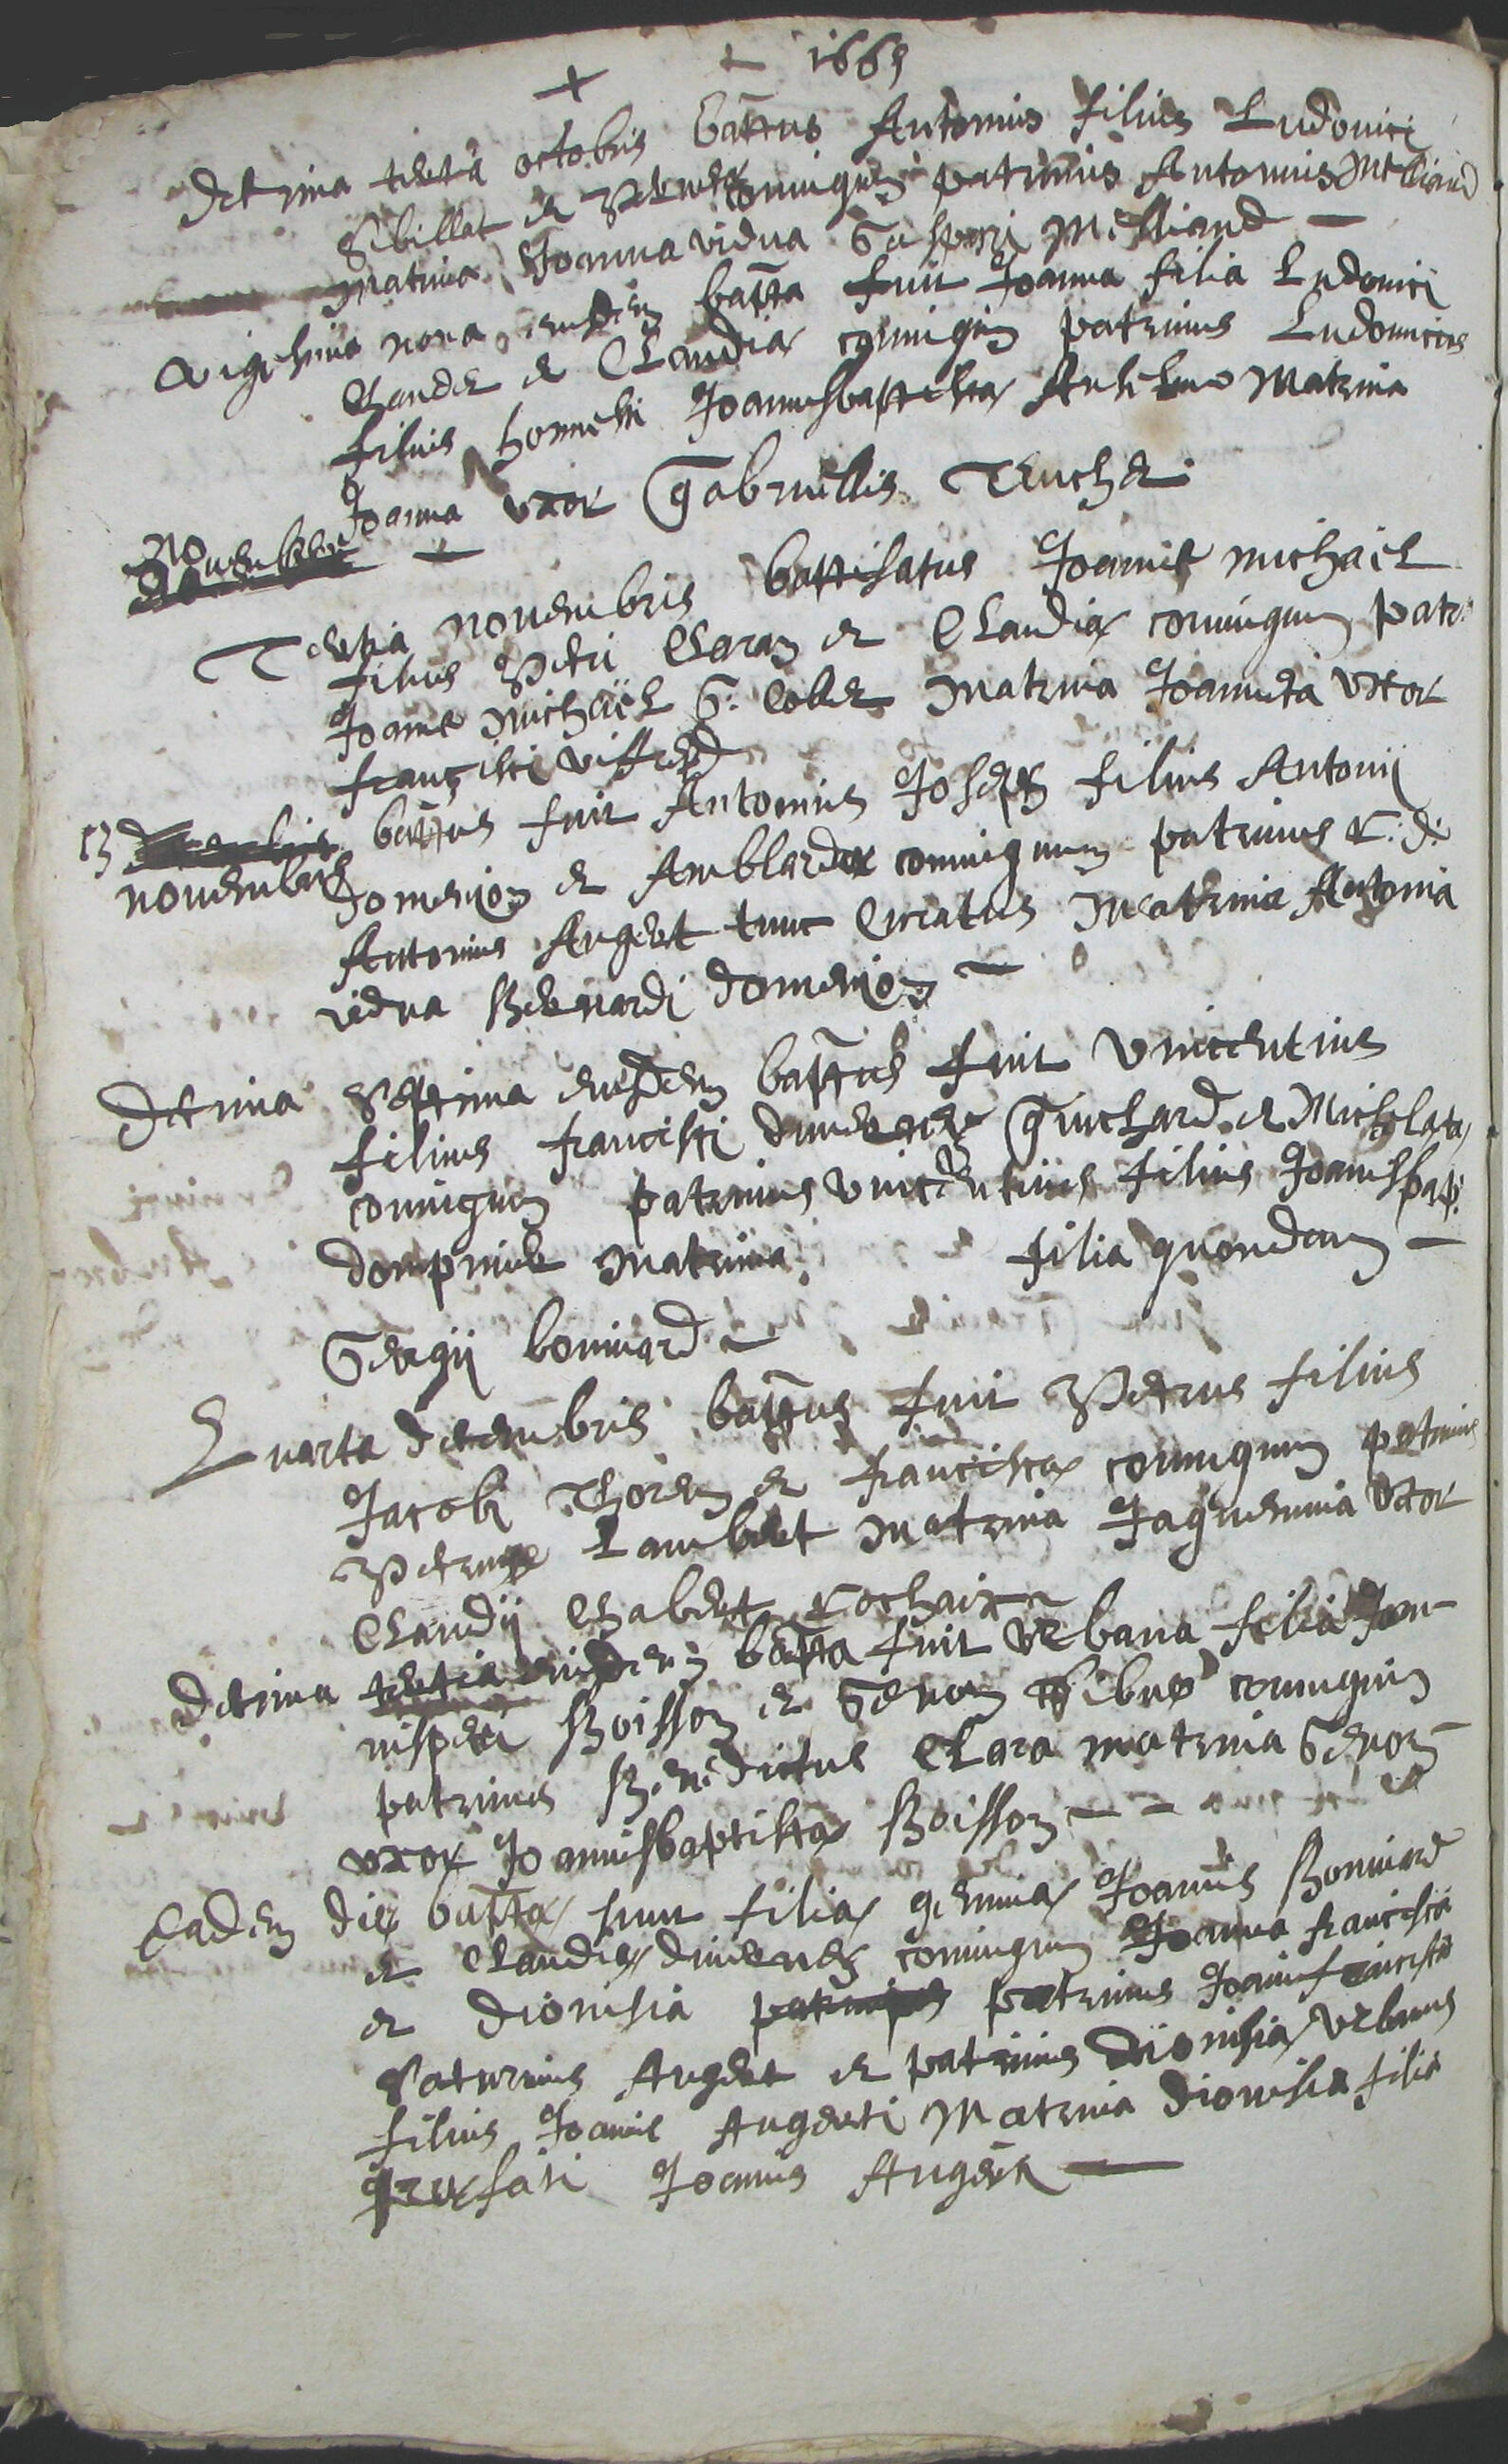 + 1665
Decima tertia octobris battus Antonius filius Ludovici
Sibillat et coniugum patrinus Antonius Melliand
Matrina Joanna vidua Gasparri Melliand —
Vigesima nona eiusdem batta fuit Joanna filia Ludovici
et Claudiæ coniugum patrinus Ludovicus
filius honnesti Joannisbattistæ Anselme Matrina
Joanna uxor Gabriellis
Novembre
Tertia novembris battisatus Joannes michaël
filius Petri Claraz et Claudiæ coniugum patr:
Joannes Michaël G: Matrina Joanneta Uxor
francisci
13 battus fuit Antonius Joseph filius Antonii
novembris Domenjoz et Amblardæ coniugum patrinus R: d:
Antonius Angert tunc Curatus Matrina Antonia
vidua Bernardi Domenjoz —
Decima Septima eiusdem battus fuit Vincentius
filius francisci Guichard et Michelæ
coniugum patrinus Vincentius filius Joannisbap:
Dompnier Matrina filia quondam —
Georgii bonivard —
Quarta decembris battus fuit Petrus filius
Jacobi et franciscæ coniugum patrinus
Petrus Lambert Matrina Jaquemina Uxor
Claudii Chabert
Decima tertia eiusdem batta fuit Urbana filia Joan-
nispetri Boisson et Genon coniugum
patrinus Benedictus Clara matrina Genon
uxor Joannisbaptistæ Boisson — —
Eadem die battæ sunt filiæ geminæ Joannis Bonivard
et Claudiæ coniugum Joanna francisca
et Dionisia patrinus Joannæfranciscæ
Saturnius Angert et patrinus Dionisiæ Urbanus
filius Joannis Angerti Matrina Dionisia filia
præfati Joannis Angert —